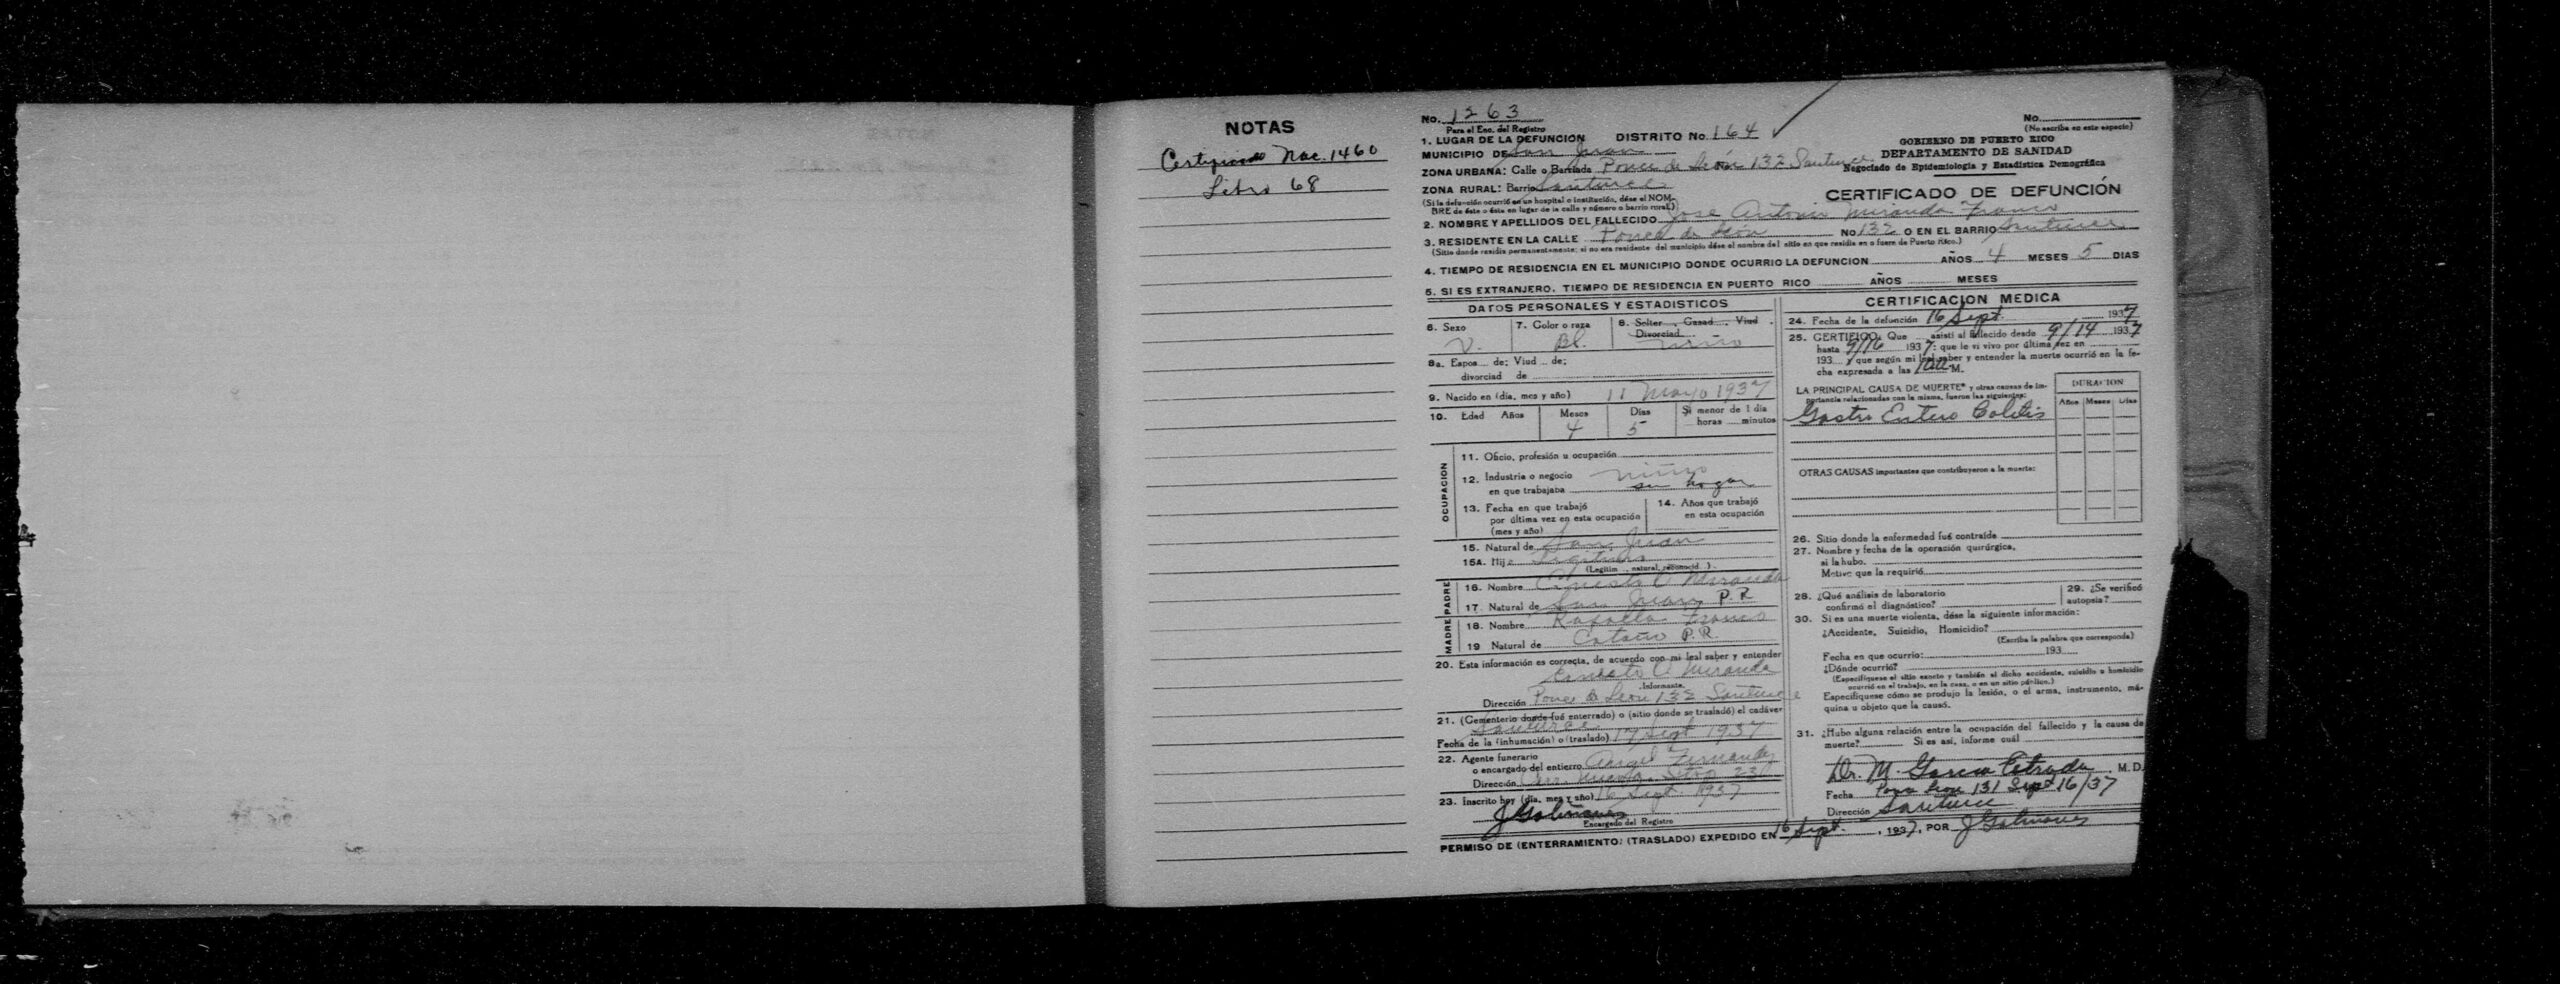 NOTAS
Certificado Nac. 1460
Libro 68
No. 1263
Para el Enc. del Registro
1. LUGAR DE LA DEFUNCION DISTRITO No. 164
MUNICIPIO DE San Juan
ZONA URBANA: Calle o Barriada Ponce de León No. 132 Santurce
ZONA RURAL: Barrio Santurce
(Si la defunción ocurrió en un hospital o institución, dése el NOM-
BRE de éste o ésta en lugar de la calle y número o barrio rural.)
No.
(No escriba en este espacio)
GOBIERNO DE PUERTO RICO
DEPARTAMENTO DE SANIDAD
Negociado de Epidemiología y Estadística Demográfica
CERTIFICADO DE DEFUNCIÓN
2. NOMBRE Y APELLIDOS DEL FALLECIDO José Antonio Miranda Franco
3. RESIDENTE EN LA CALLE Ponce de León No. 132 O EN EL BARRIO Santurce
(Sitio donde residía permanentemente; si no era residente del municipio dése el nombre del sitio en que residía en o fuera de Puerto Rico.)
4. TIEMPO DE RESIDENCIA EN EL MUNICIPIO DONDE OCURRIO LA DEFUNCION AÑOS 4 MESES 5 DIAS
5. SI ES EXTRANJERO, TIEMPO DE RESIDENCIA EN PUERTO RICO AÑOS MESES
DATOS PERSONALES Y ESTADISTICOS
6. Sexo V. 7. Color o raza Bl. 8. Solter , Casad , Viud ,
Divorciad niño
8a. Espos de; Viud de;
divorciad de
9. Nacido en (día, mes y año) 11 Mayo 1937
10. Edad Años Meses Días Si menor de 1 día
horas minutos
4 5
OCUPACION
11. Oficio, profesión u ocupación
12. Industria o negocio niño
en que trabajaba su hogar
13. Fecha en que trabajó
por última vez en esta ocupación
(mes y año)
14. Años que trabajó
en esta ocupación
15. Natural de San Juan
15A. Hij
(Legítim , natural, reconocid .)
PADRE
16. Nombre Ernesto O Miranda
17. Natural de San Juan P. R
MADRE
18. Nombre Rafaela Franco
19 Natural de Cataño P. R
20. Esta información es correcta, de acuerdo con mi leal saber y entender
Ernesto O Miranda
Informante.
Dirección Ponce de León 132 Santurce
21. (Cementerio donde fué enterrado) o (sitio donde se trasladó) el cadáver
Santurce
Fecha de la (inhumación) o (traslado) 17 Sept 1937
22. Agente funerario
o encargado del entierro Angel Fernandez
Dirección Carr. Nueva 23
23. Inscrito hoy (día, mes y año) 16 Sept. 1937
J Galinanes
Encargado del Registro
CERTIFICACION MEDICA
24. Fecha de la defunción 16 Sept. 1937
25. CERTIFICO: Que asistí al fallecido desde 9/14 1937
hasta 9/16 1937; que le vi vivo por última vez en
193 y que según mi leal saber y entender la muerte ocurrió en la fe-
cha expresada a las M.
LA PRINCIPAL CAUSA DE MUERTE* y otras causas de im-
portancia relacionadas con la misma, fueron las siguientes:
Gastro Entero Colitis
DURACION
Años Meses Días
OTRAS CAUSAS importantes que contribuyeron a la muerte:
26. Sitio donde la enfermedad fué contraída
27. Nombre y fecha de la operación quirúrgica,
si la hubo.
Motivo que la requirió
28. ¿Qué análisis de laboratorio
confirmó el diagnóstico?
29. ¿Se verificó
autopsia?
30. Si es una muerte violenta, dése la siguiente información:
¿Accidente, Suicidio, Homicidio?
(Escriba la palabra que corresponda)
Fecha en que ocurrio: 193
¿Dónde ocurrió?
(Especifíquese el sitio exacto y también si dicho accidente, suicidio u homicidio
ocurrió en el trabajo, en la casa, o en un sitio público.)
Especifíquese cómo se produjo la lesión, o el arma, instrumento, má-
quina u objeto que la causó.
31. ¿Hubo alguna relación entre la ocupación del fallecido y la causa de
muerte? Si es así, informe cuál
Dr. M. Garcia Estrada M. D.
Fecha Ponce Leon 131 Sept 16/37
Dirección Santurce
PERMISO DE (ENTERRAMIENTO) (TRASLADO) EXPEDIDO EN 16 Sept. , 1937, POR J Galinanes